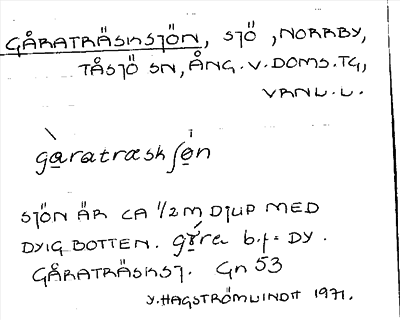 GÅRATRÄSKSJÖN, SJÖ, NORRBY,
TÅSJÖ SN, ÅNG. V. DOMS. TG,
VRNL. L.
garatræskʃøn
SJÖN ÄR CA 1/2 M DJUP MED
DYIG BOTTEN. b.f = DY.
GÅRATRÄSKSJ. Gn 53
Y. HAGSTRÖM LINDH 1971.